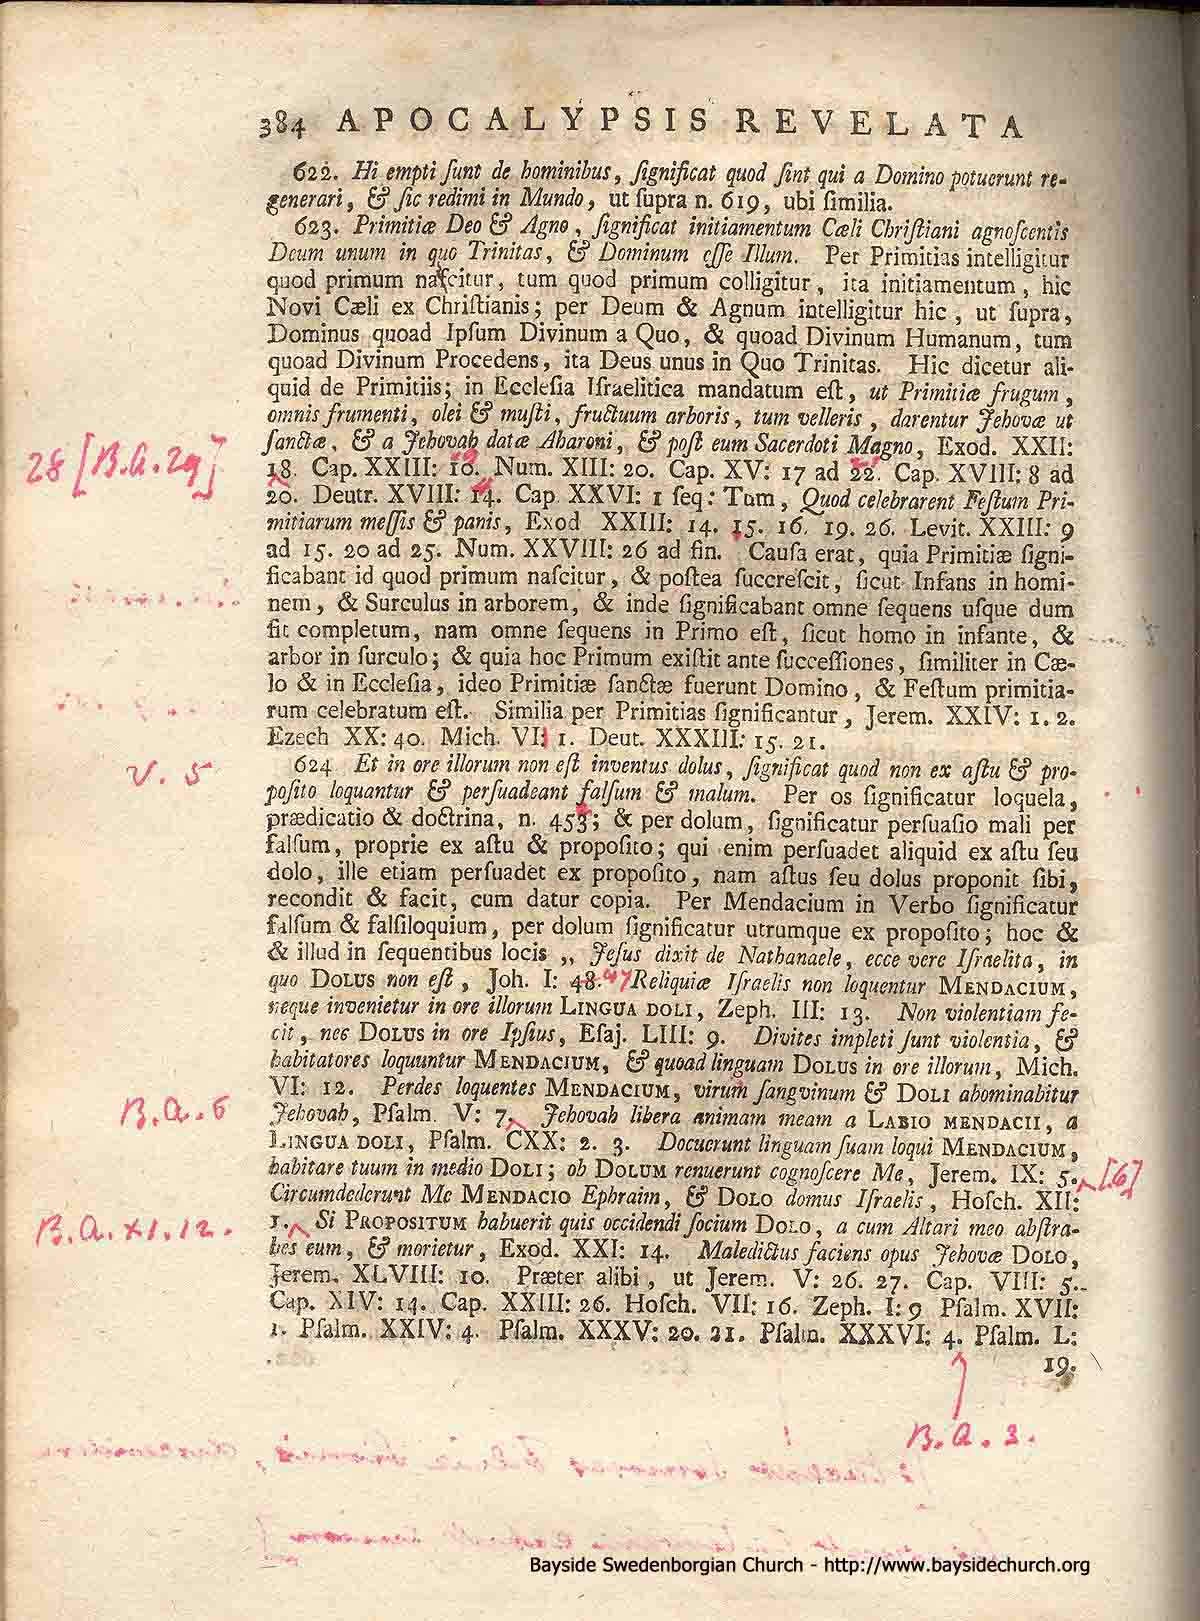 384 APOCALYPSIS REVELATA
622. Hi empti ſunt de hominibus, ſignificat quod ſint qui a Domino potuerunt re-
generari, & ſic redimi in Mundo, ut ſupra n. 619, ubi ſimilia.
623. Primitiæ Deo & Agno, ſignificat initiamentum Cæli Chriſtiani agnoſcentis
Deum unum in quo Trinitas, & Dominum eſſe Illum. Per Primitias intelligitur
quod primum naſcitur, tum quod primum colligitur, ita initiamentum, hic
Novi Cæli ex Chriſtianis; per Deum & Agnum intelligitur hic, ut ſupra,
Dominus quoad Ipſum Divinum a Quo, & quoad Divinum Humanum, tum
quoad Divinum Procedens, ita Deus unus in Quo Trinitas. Hic dicetur ali-
quid de Primitiis; in Eccleſia Iſraelitica mandatum eſt, ut Primitiæ frugum,
omnis frumenti, olei & muſti, fructuum arboris, tum velleris, darentur Jehovæ ut
ſanctæ, & a Jehovah datæ Aharoni, & poſt eum Sacerdoti Magno, Exod. XXII:
28 [B.a. 29]
18. Cap. XXIII: 10. Num. XIII: 20. Cap. XV: 17 ad 22. Cap. XVIII: 8 ad
20. Deutr. XVIII: 14. Cap. XXVI: 1 ſeq: Tum, Quod celebrarent Feſtum Pri-
mitiarum meſſis & panis, Exod XXIII: 14. 15. 16. 19. 26. Levit. XXIII: 9
ad 15. 20 ad 25. Num. XXVIII: 26 ad fin. Cauſa erat, quia Primitiæ ſigni-
ficabant id quod primum naſcitur, & poſtea ſuccreſcit, ſicut Infans in homi-
nem, & Surculus in arborem, & inde ſignificabant omne ſequens uſque dum
fit completum, nam omne ſequens in Primo eſt, ſicut homo in infante, &
arbor in ſurculo; & quia hoc Primum exiſtit ante ſucceſſiones, ſimiliter in Cæ-
lo & in Eccleſia, ideo Primitiæ ſanctæ fuerunt Domino, & Feſtum primitia-
rum celebratum eſt. Similia per Primitias ſignificantur, Jerem. XXIV: 1. 2.
Ezech XX: 40. Mich. VI: 1. Deut. XXXIII: 15. 21.
V. 5
624 Et in ore illorum non eſt inventus dolus, ſignificat quod non ex aſtu & pro-
poſito loquantur & perſuadeant falſum & malum. Per os ſignificatur loquela,
prædicatio & doctrina, n. 453; & per dolum, ſignificatur perſuaſio mali per
falſum, proprie ex aſtu & propoſito; qui enim perſuadet aliquid ex aſtu ſeu
dolo, ille etiam perſuadet ex propoſito, nam aſtus ſeu dolus proponit ſibi,
recondit & facit, cum datur copia. Per Mendacium in Verbo ſignificatur
falſum & falſiloquium, per dolum ſignificatur utrumque ex propoſito; hoc &
& illud in ſequentibus locis ,, Jeſus dixit de Nathanaele, ecce vere Iſraelita, in
quo DOLUS non eſt, Joh. I: 48. 47 Reliquiæ Iſraelis non loquentur MENDACIUM,
neque invenietur in ore illorum LINGUA DOLI, Zeph. III: 13. Non violentiam fe-
cit, nec DOLUS in ore Ipſius, Eſaj. LIII: 9. Divites impleti ſunt violentia, &
habitatores loquuntur MENDACIUM, & quoad linguam DOLUS in ore illorum, Mich.
VI: 12. Perdes loquentes MENDACIUM, virum ſangvinum & DOLI abominabitur
B.a. 6
Jehovah, Pſalm. V: 7. Jehovah libera animam meam a LABIO MENDACII, a
LINGUA DOLI, Pſalm. CXX: 2. 3. Docuerunt linguam ſuam loqui MENDACIUM,
habitare tuum in medio DOLI; ob DOLUM renuerunt cognoſcere Me, Jerem. IX: 5. [.6]
Circumdederunt Me MENDACIO Ephraim, & DOLO domus Iſraelis, Hoſch. XII:
B.a. XI. 12.
1. Si PROPOSITUM habuerit quis occidendi ſocium DOLO, a cum Altari meo abſtra-
hes eum, & morietur, Exod. XXI: 14. Maledictus faciens opus Jehovæ DOLO,
Jerem. XLVIII: 10. Præter alibi, ut Jerem. V: 26. 27. Cap. VIII: 5.
Cap. XIV: 14. Cap. XXIII: 26. Hoſch. VII: 16. Zeph. I: 9 Pſalm. XVII:
1. Pſalm. XXIV: 4. Pſalm. XXXV: 20. 21. Pſalm. XXXVI: 4. Pſalm. L:
19.
B.a. 3.
Bayside Swedenborgian Church - http://www.baysidechurch.org